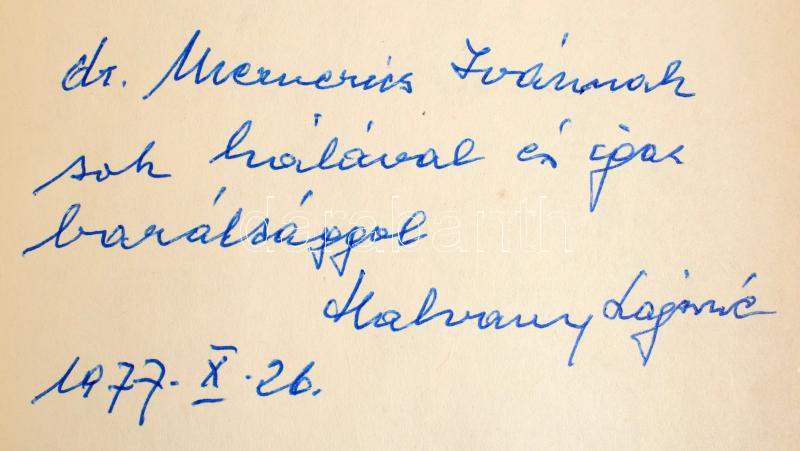 dr. Mernerics Ivánnak
sok hálával és igaz
barátsággal
darabanth
Hatvany Lajosné
1977. X. 26.